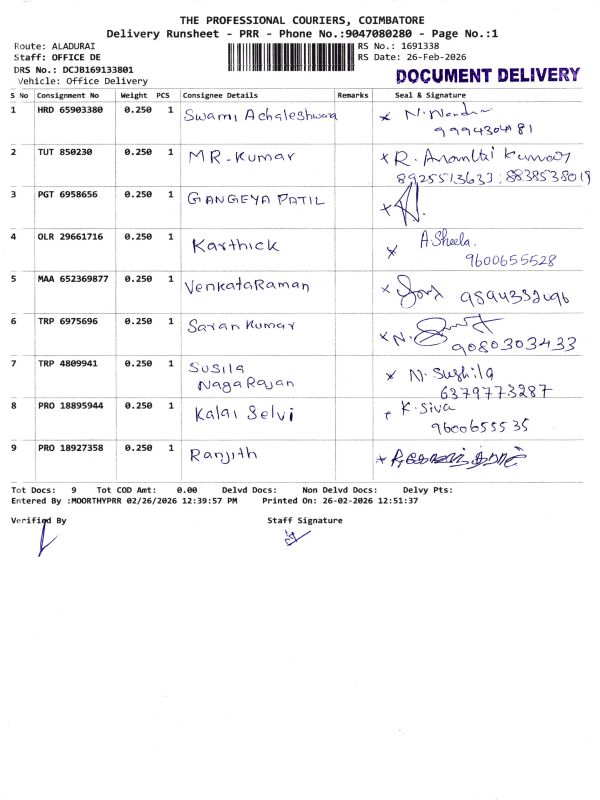 THE PROFESSIONAL COURIERS, COIMBATORE
Delivery Runsheet - PRR - Phone No.:9047080280 - Page No.:1
Route: ALADURAI RS No.: 1691338
Staff: OFFICE DE RS Date: 26-Feb-2026
DRS No.: DCJB169133801
DOCUMENT DELIVERY
Vehicle: Office Delivery
S No Consignment No Weight PCS Consignee Details Remarks Seal & Signature
1 HRD 65903380 0.250 1 Swami Achaleshwara N. Nandini
9994304181
2 TUT 850230 0.250 1 MR-Kumar R. Kumar
8925513633; 8838538019
3 PGT 6958656 0.250 1 GANGEYA PATIL
4 OLR 29661716 0.250 1 Karthick A.Sheela.
9600655528
5 MAA 652369877 0.250 1 VenkataRaman
6 TRP 6975696 0.250 1 Saran Kumar N.
9080303433
7 TRP 4809941 0.250 1 Susila N. Sushila
NagaRajan 6379773287
8 PRO 18895944 0.250 1 Kalai Selvi K. Siva
9600655535
9 PRO 18927358 0.250 1 Ranjith
Tot Docs: 9 Tot COD Amt: 0.00 Delvd Docs: Non Delvd Docs: Delvy Pts:
Entered By :MOORTHYPRR 02/26/2026 12:39:57 PM Printed On: 26-02-2026 12:51:37
Verified By Staff Signature